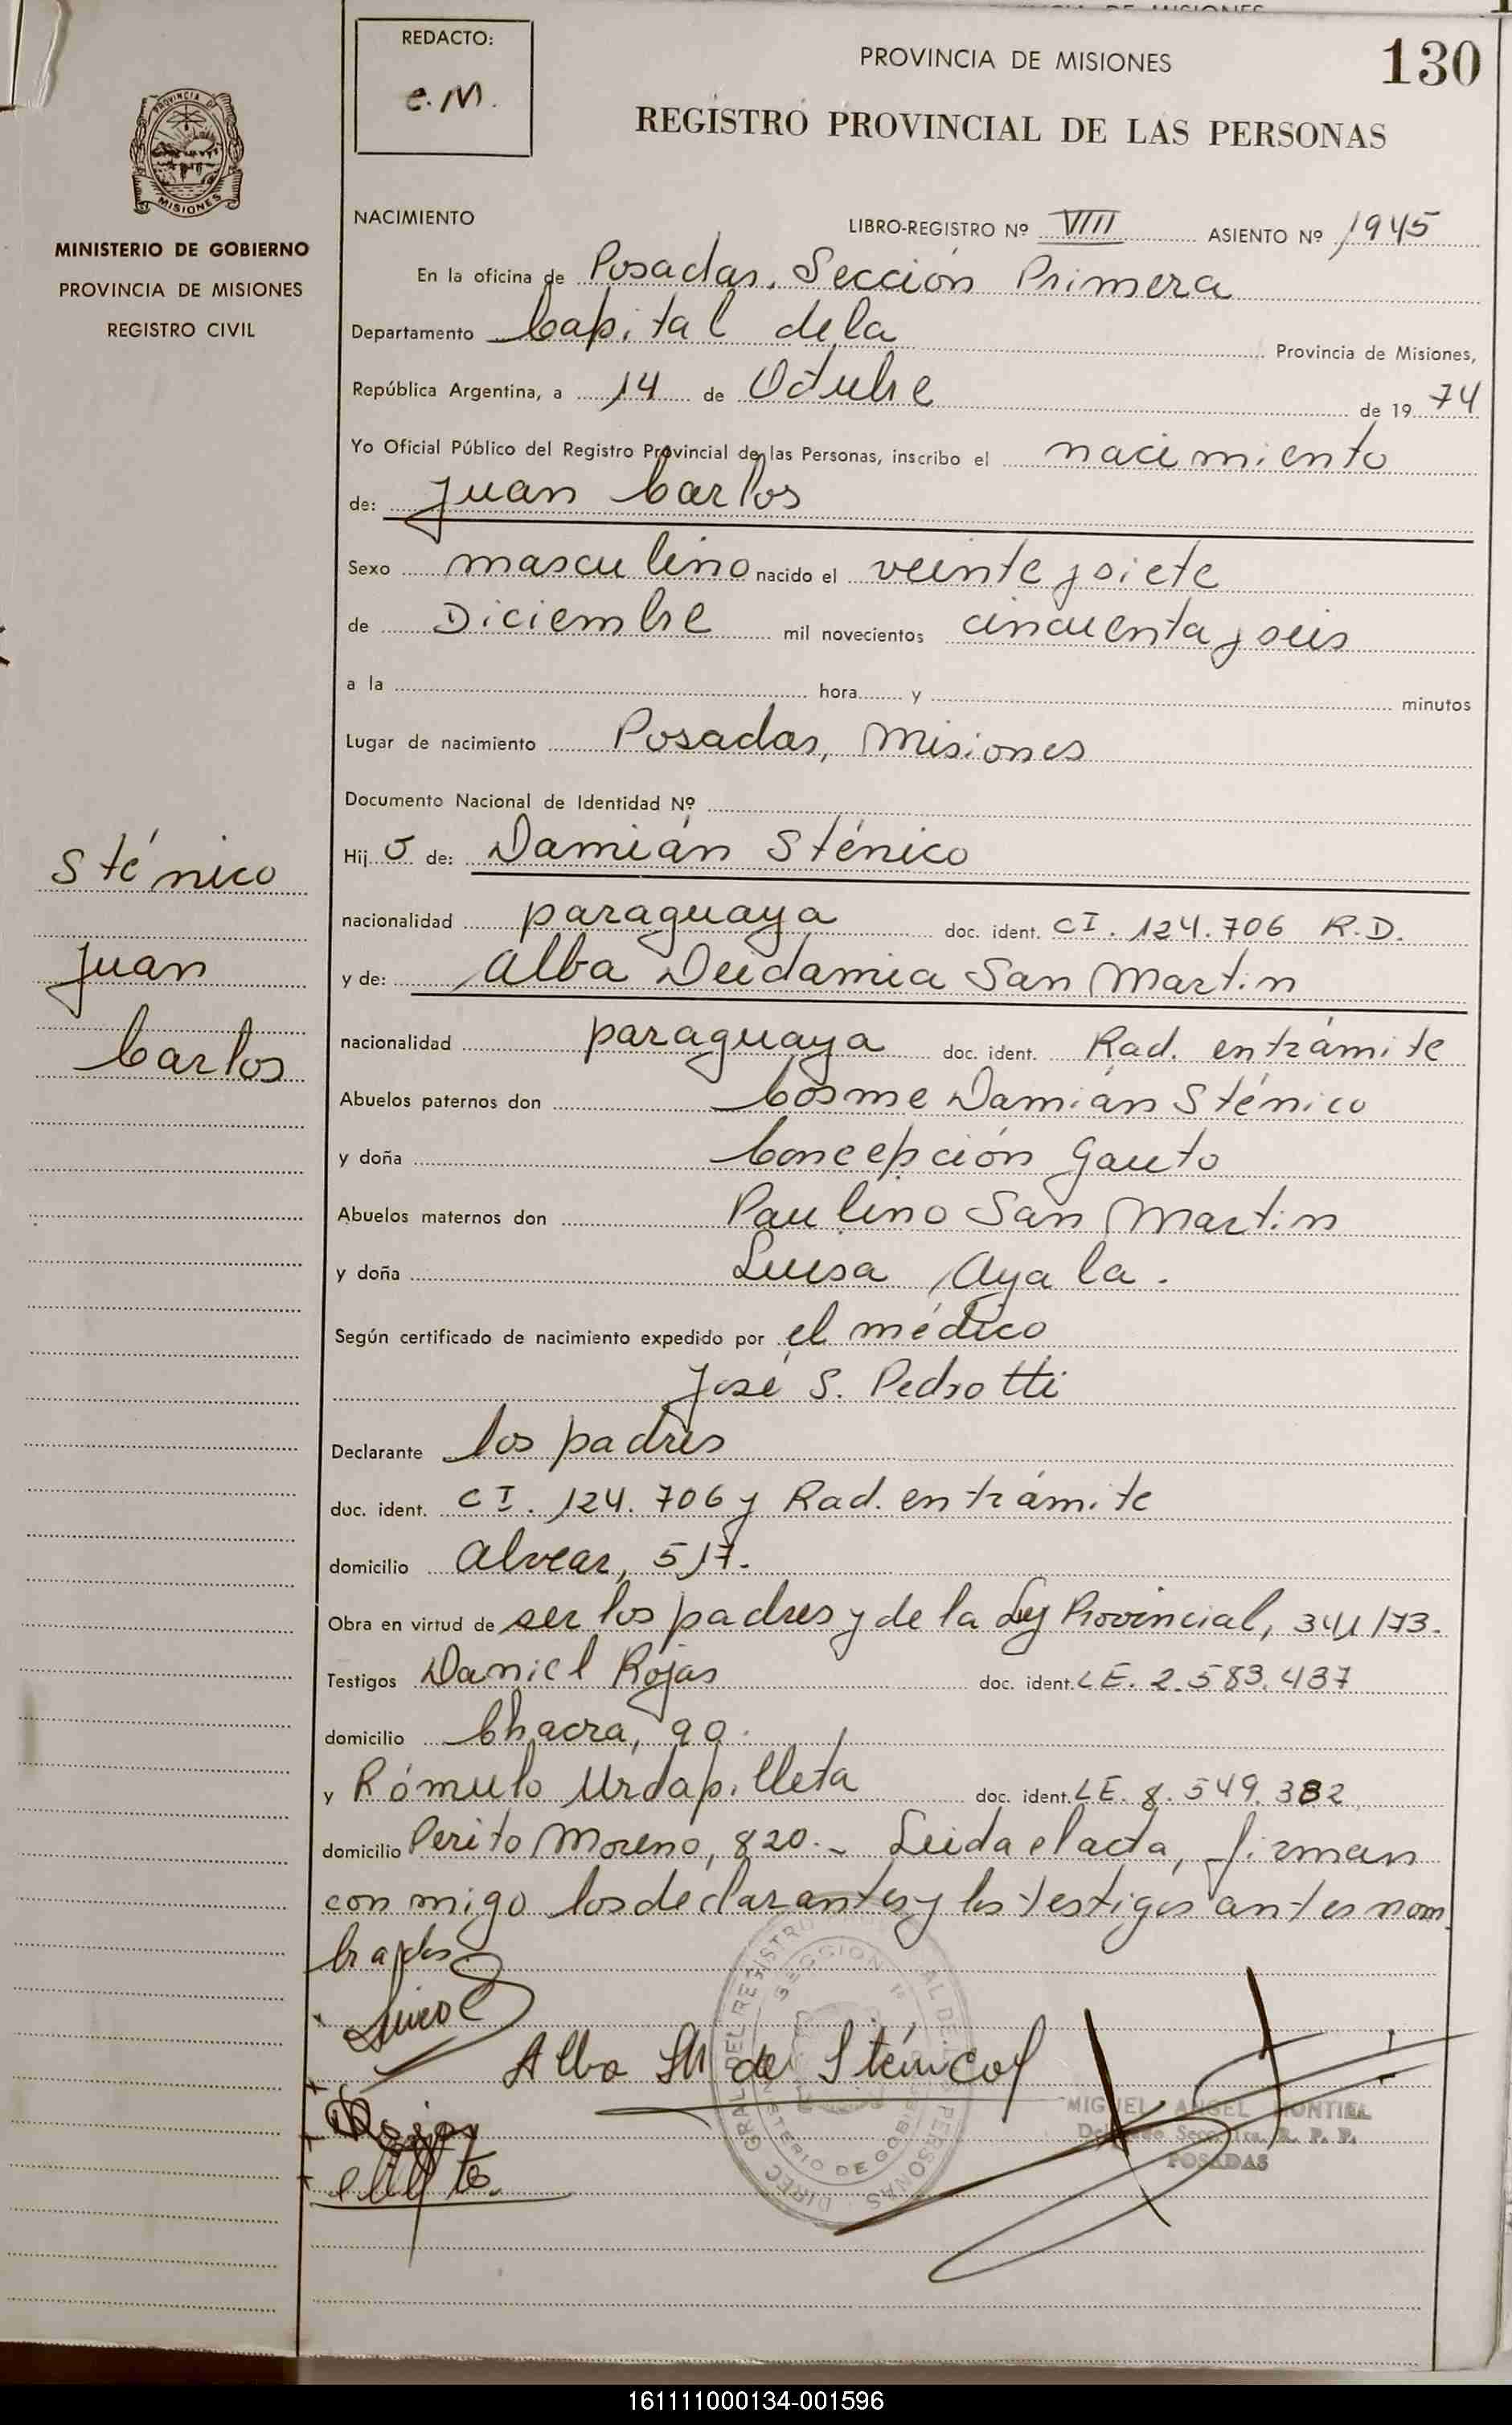 REDACTO:
e.M.
PROVINCIA DE MISIONES
130
REGISTRO PROVINCIAL DE LAS PERSONAS
PROVINCIA DE
MISIONES
MINISTERIO DE GOBIERNO
PROVINCIA DE MISIONES
REGISTRO CIVIL
NACIMIENTO LIBRO-REGISTRO Nº VIII ASIENTO Nº 1945
En la oficina de Posadas, Sección Primera
Departamento Capital de la Provincia de Misiones,
República Argentina, a 14 de Octubre de 19 74
Yo Oficial Público del Registro Provincial de las Personas, inscribo el nacimiento
de: Juan Carlos
Sexo masculino nacido el veinte y siete
de Diciembre mil novecientos cincuenta y seis
a la hora y minutos
Lugar de nacimiento Posadas, Misiones
Documento Nacional de Identidad Nº
Hij o de: Damián Sténico
Sténico
Juan
Carlos
nacionalidad paraguaya doc. ident. CI. 124.706 R.D.
y de: Alba Deidamia San Martin
nacionalidad paraguaya doc. ident. Rad. en trámite
Abuelos paternos don Cosme Damián Sténico
y doña Concepción Gauto
Abuelos maternos don Paulino San Martin
y doña Luisa Ayala.
Según certificado de nacimiento expedido por el médico
José S. Pedrotti
Declarante los padres
doc. ident. CI. 124.706 y Rad. en trámite
domicilio Alvear, 517.
Obra en virtud de ser los padres y de la Ley Provincial, 341/73.
Testigos Daniel Rojas doc. ident. LE. 2.583.437
domicilio Chacra, 90.
y Rómulo Urdapilleta doc. ident. LE. 8.549.382
domicilio Perito Moreno, 820.- Leida el acta, firman
conmigo los declarantes y los testigos antes nom
brados
Alba SM de Sténico
MIGUEL ANGEL MONTIEL
POSADAS
161111000134-001596